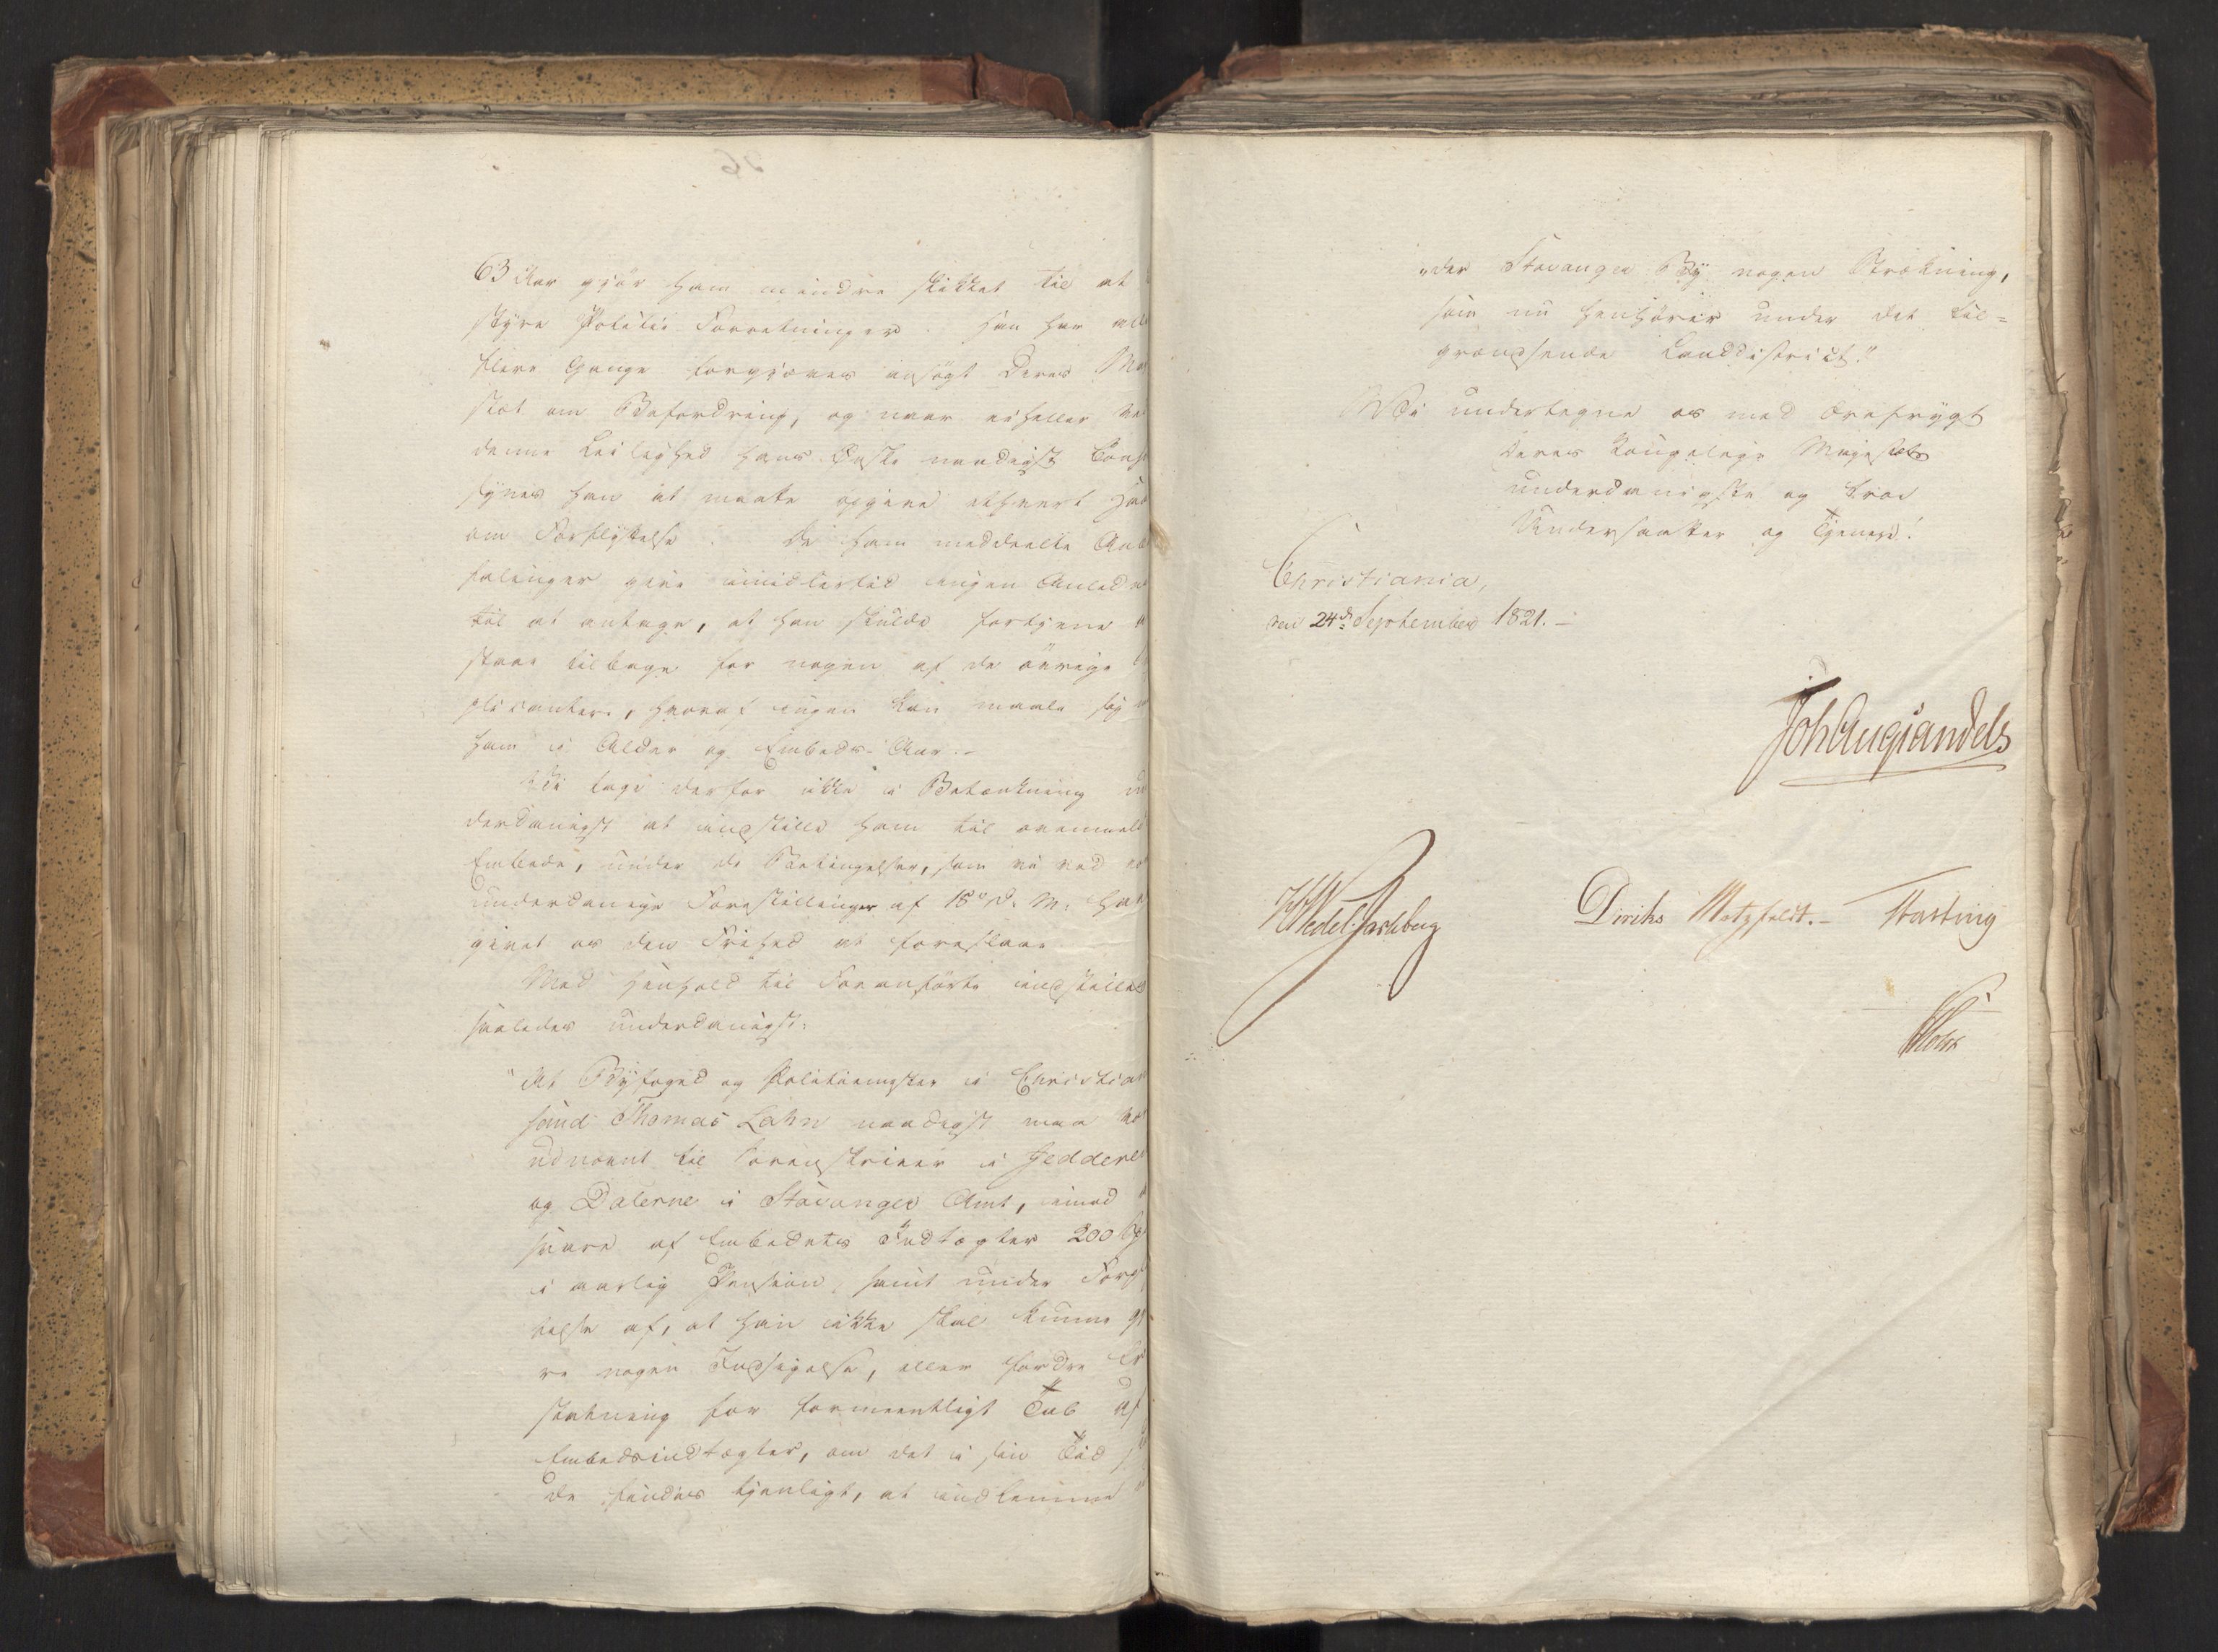 63 Aar gjør ham mindre skikket til at
styre Politie Forretninger. Han har all
flere Gange forgjæves ansøgt Deres Ma
stæt om Befordring, og naar ei heller ve
denne Leilighed hans Ønske naadigst bønh
synes han at maatte opgive ethvert Haa
om Forflyttelse. De ham meddeelte Anb
falinger give imidlertid ingen Anledn
til at antage, at han skulde fortjene a
staae tilbage for nogen af de øvrige
plicantere, hvoraf ingen kan maale sig m
ham i Alder og Embeds-Aar.-
Vi tage derfor ikke i Betænkning un
derdanigst at indstille ham til ovenmeld
Embede, under de Betingelser, som vi ved
underdanige Forestillinger af 18de d. M. har
givet os den Frihed at foreslaae
Med Henhold til Foranførte indstilles
saaledes underdanigst:
"At Byfoged og Politiemester i Christian
sund Thomas Lahn naadigst maa vo
udnævnt til Sorenskriver i Jeddere
og Dalerne i Stavanger Amt, imod
svare af Embedets Indtægter 200 Sp
i aarlig Pension, samt under Forp
telse af, at han ikke skal kunne gj
re nogen Indsigelse, eller fordre Er
statning for formeentligt Tab af
Embedsindtægter, om det i sin Tid s
de findes tjenligt, at indlemme
"der Stavanger By nogen Strækning,
som nu henhører under det til=
grændsende Landdistrict."
Vi undertegne os med Ærefrygt
Deres Kongelige Majestæts
underdanigste og troe
Undersaatter og Tjenere!
Christiania,
den 24de September 1821.-
Joh Aug Sandels
HWedel Jarlsberg
Diriks Motzfeldt.- Hasting
Holst